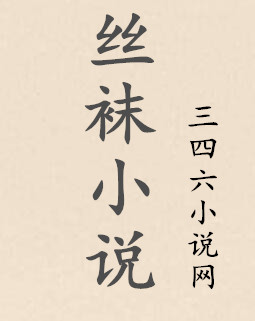 丝袜小说
三四六小说网